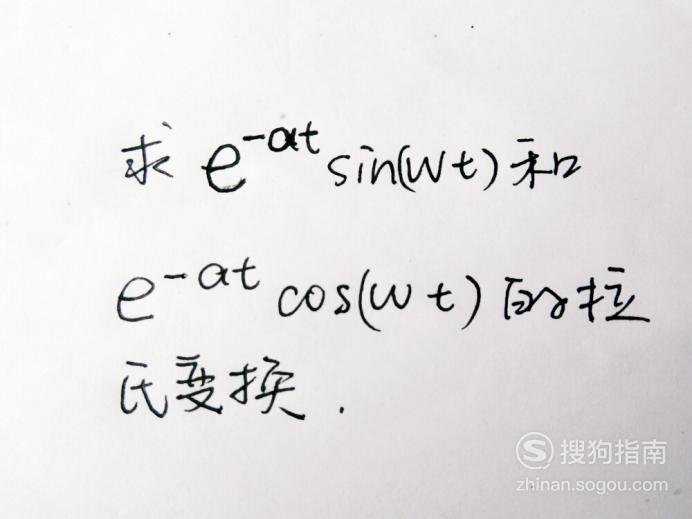 求 e^{-αt} sin(wt) 和
e^{-αt} cos(wt) 的拉
氏变换.
搜狗指南
zhinan.sogou.com